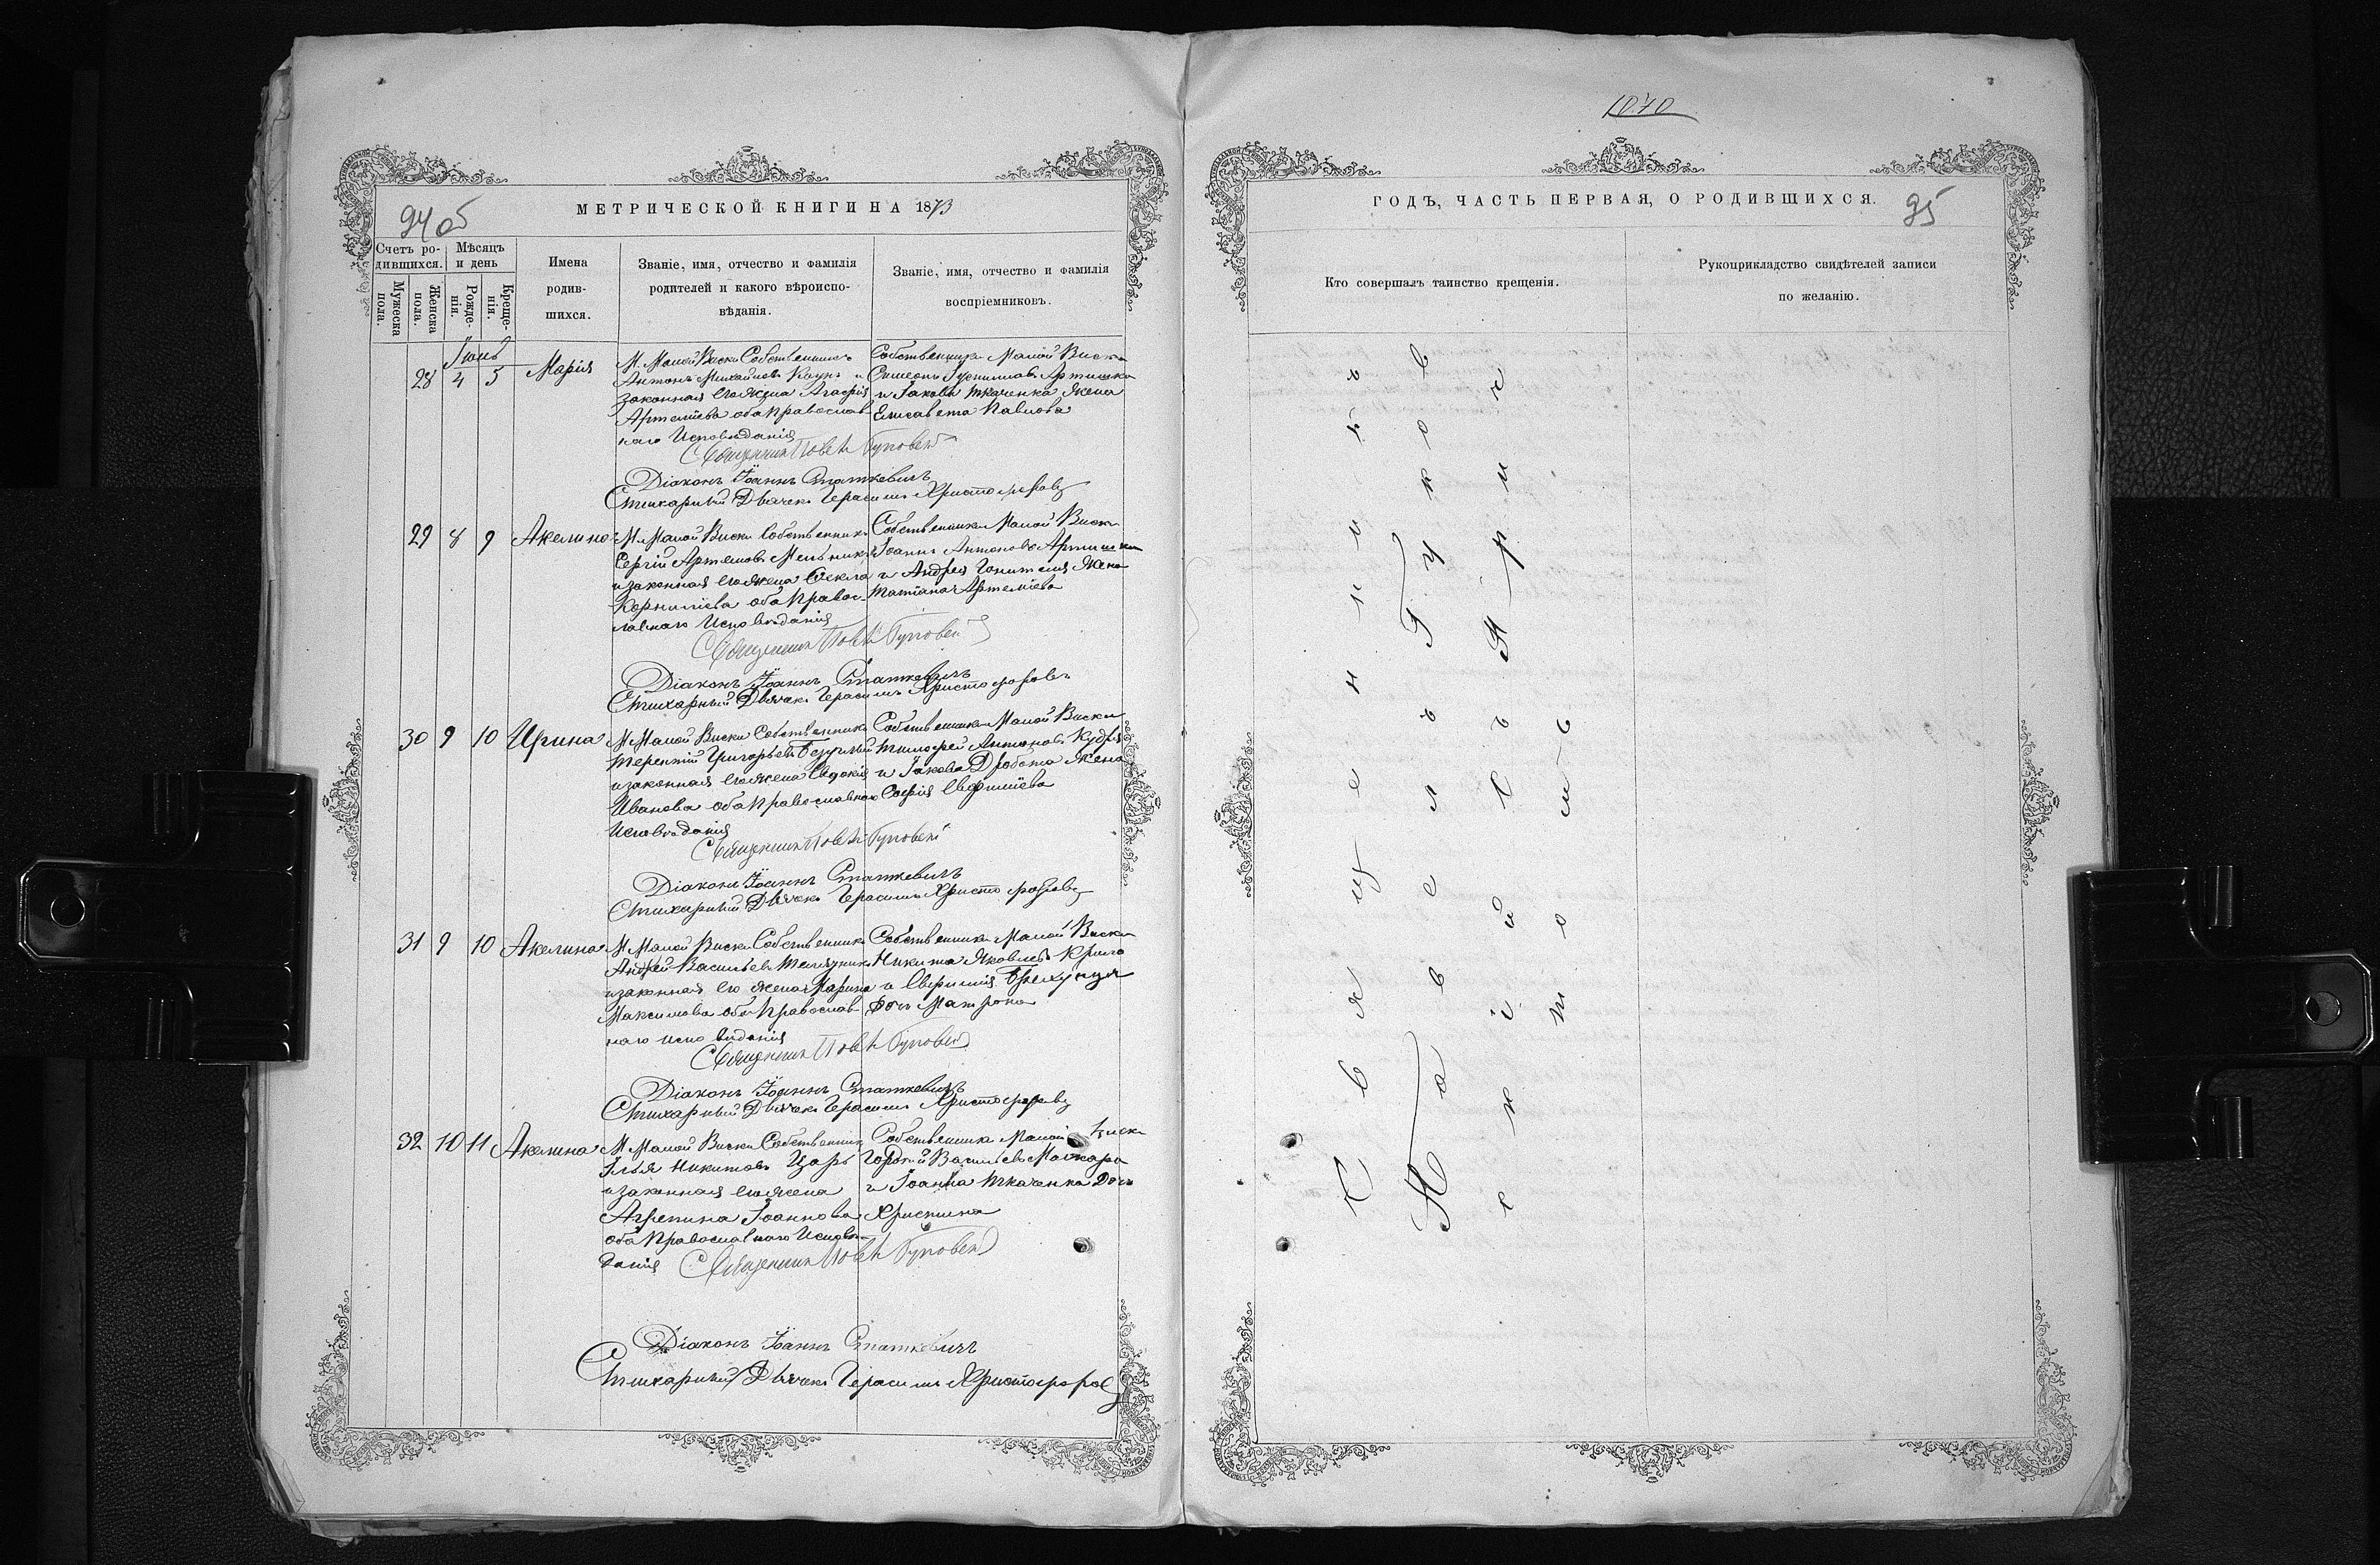 МЕТРИЧЕСКОЙ КНИГИ НА 1873
94об
Счетъ ро-
дившихся.
Мужеска
пола.
Женска
пола.
Мѣсяцъ
и день
Рожде-
нія.
Креще-
нія.
Имена
родив-
шихся.
Званіе, имя, отчество и фамилія
родителей и какого вѣроиспо-
вѣданія.
Званіе, имя, отчество и фамилія
воспріемниковъ.
28 4 5 Марія
М. Малой Виски Собственникъ
Антонъ Михайловъ и
законная его жена Агафія
Артемьева оба православ-
наго Исповѣданія
Собственники Малой Виски
Симеонъ
и Іакова Ткаченка жена
Елисавета Павлова
Священникъ
Діаконъ Іоаннъ Статкевичъ
Стихарный Дьячекъ Герасимъ Христофоровъ
29 8 9 Акелина
М. Малой Виски Собственникъ
Сергій Артемовъ Мельникъ
и законная его жена Ѳекла
Корниліева оба Правос-
лавнаго Исповѣданія
Собственники Малой Виски
Іоаннъ Антоновъ
и Андрея жена
Татіана Артеміева
Священникъ
Діаконъ Іоаннъ Статкевичъ
Стихарный Дьячекъ Герасимъ Христофоровъ
30 9 10 Ирина
М. Малой Виски Собственникъ
Терентій Григорьевъ
и законная его жена Евдокія
Иванова оба Православнаго
Исповѣданія
Собственники Малой Виски
Тимофей Антоновъ Кудря
и Іакова Дробота жена
Софія Евфиміева
Священникъ
Діаконъ Іоаннъ Статкевичъ
Стихарный Дьячекъ Герасимъ Христофоровъ
31 9 10 Акелина
М. Малой Виски Собственникъ
Андрей Васильевъ
и законная его жена Марина
Максимова оба Православ-
наго исповѣданія
Собственники Малой Виски
Никита Яковлевъ
и Евфимія Брехунця
дочь Матрона
Священникъ
Діаконъ Іоаннъ Статкевичъ
Стихарный Дьячекъ Герасимъ Христофоровъ
32 10 11 Акелина
М. Малой Виски Собственникъ
Илья Никитовъ Царь
и законная его жена
Агрепина Іоаннова
оба Православнаго Исповѣ-
данія
Собственники Малой Виски
Гордѣй Васильевъ
и Іоанна Ткаченка дочь
Христина
Священникъ
Діаконъ Іоаннъ Статкевичъ
Стихарный Дьячекъ Герасимъ Христофоровъ
1070
ГОДЪ, ЧАСТЬ ПЕРВАЯ, О РОДИВШИХСЯ.
95
Кто совершалъ таинство крещенія.
Рукоприкладство свидѣтелей записи
по желанію.
Священникъ
Павелъ